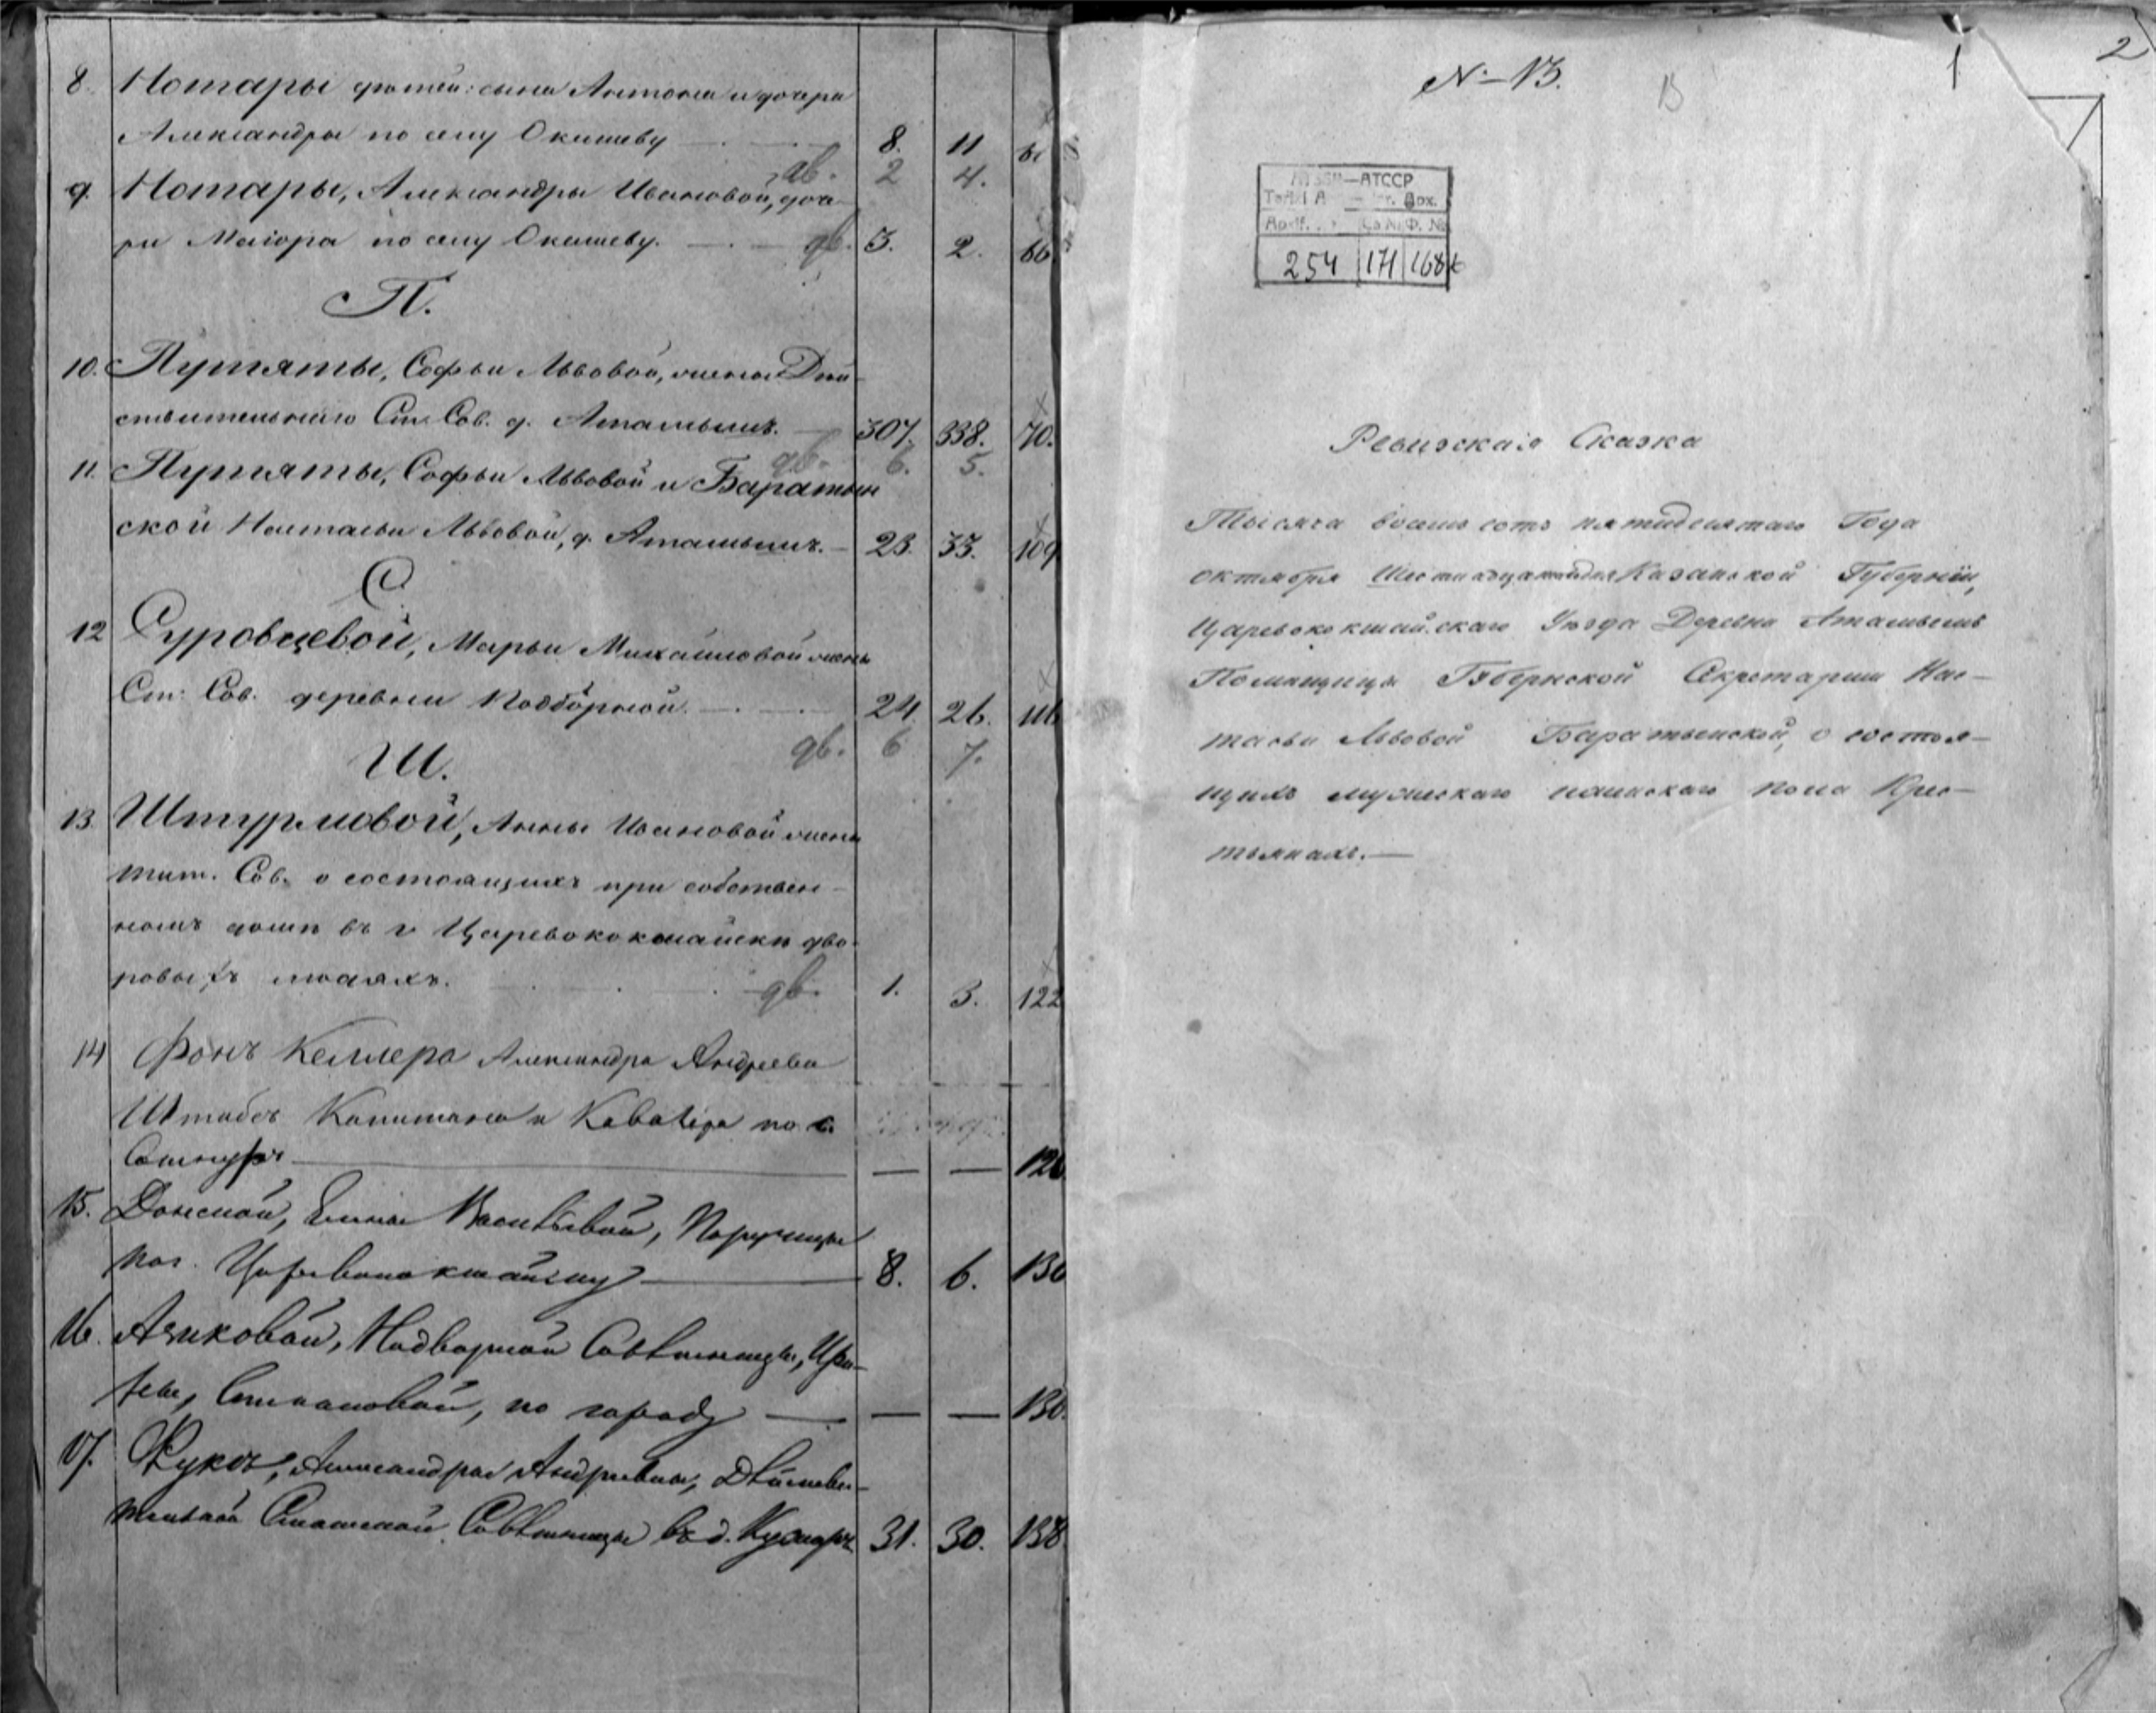 8. Нотары детей: сына Антона и дочери
Александры по селу Окишеву 8. 11
дв. 2 4.
9. Нотары, Александры Ивановой, доче-
ри Маіора по селу Окишеву. дв. 3. 2. 66
П.
10. Путяты, Софьи Львовой, жены Дѣй-
ствительнаго Ст. Сов. д. Аталыкъ. 307. 338. 70.
дв. 6. 5.
11. Путяты, Софьи Львовой и Баратын
ской Настасьи Львовой, д. Аталыкъ. 23. 33. 109
С
12 Суровцевой, Марьи Михайловой жены
Ст: Сов. деревни Подборной. 24. 26. 116
дв. 6 7.
Ш.
13 Штурмовой, Анны Ивановой жены
тит. Сов. о состоящихъ при собствен-
номъ домѣ въ г Царевококшайскѣ дво-
ровыхъ людяхъ. дв. 1. 3. 122
14 Фонъ Келлера Александра Андреева
Штабсъ Капитана и Кавалера по с.
— — 126
15. Донской, Елены Васильевой, Поручицы
по г. Царевококшайску 8. 6. 130
16. Азиковой, Надворной Совѣтницы,
Степановой, по городу — — 130.
17. Фуксъ, Александры Андревны, Дѣйстви-
тельной Статской Совѣтницы въ д. 31. 30. 138
№ 13.
13
1
2
АТССР
254 171 168
Ревизская Сказка
Тысяча восемь сотъ пятидесятаго Года
октября Шестнадцатаго дня Казанской Губерніи,
Царевококшайскаго Уѣзда Деревни Аталыкъ
Помѣщицы Губернской Секретарши Нас-
тасьи Львовой Баратынской, о состоя-
щихъ мужескаго и женскаго пола Крес-
тьянахъ.—